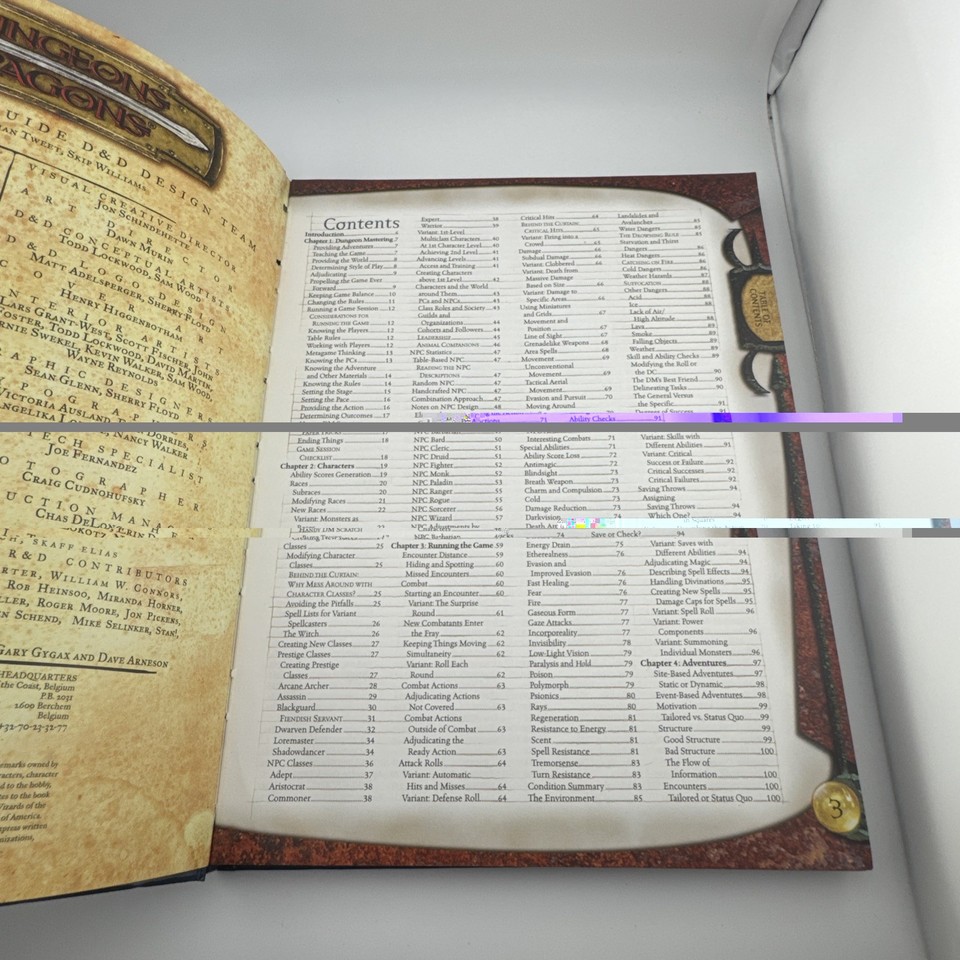 UIDE D&D DESIGN TEAM
AN TWEET, SKIP WILLIAMS
VISUAL CREATIVE DIRECTOR
JON SCHINDEHETTE
DAWN MURIN
D&D CONCEPTUAL ARTIST
TODD LOCKWOOD, SAM WOOD
MATT ADELSPERGER, SHERRY FLOYD
HENRY HIGGENBOTHAM
LARS GRANT-WEST, SCOTT FISCHER, JOHN
FOSTER, TODD LOCKWOOD, DAVID MARTIN,
SWEKEL, KEVIN WALKER, SAM WOOD
WAYNE REYNOLDS
GRAPHIC DESIGNERS
SEAN GLENN, SHERRY FLOYD
NANCY WALKER
TECH SPECIALIST
JOE FERNANDEZ
CRAIG CUDNOHUFSKY
SKAFF ELIAS
R&D CONTRIBUTORS
WILLIAM W. CONNORS,
ROB HEINSOO, MIRANDA HORNER,
LLER, ROGER MOORE, JON PICKENS,
N SCHEND, MIKE SELINKER, STAN!,
GARY GYGAX AND DAVE ARNESON
HEADQUARTERS
the Coast, Belgium
P.B. 2031
2600 Berchem
Belgium
+32-70-23-32-77
Contents
Introduction 6
Chapter 1: Dungeon Mastering 7
Providing Adventures 7
Teaching the Game 7
Providing the World 8
Determining Style of Play 8
Adjudicating 8
Propelling the Game Ever
Forward 9
Keeping Game Balance 10
Changing the Rules 11
Running a Game Session 12
CONSIDERATIONS FOR
RUNNING THE GAME 12
Knowing the Players 12
Table Rules 12
Working with Players 12
Metagame Thinking 13
Knowing the PCs 13
Knowing the Adventure
and Other Materials 14
Knowing the Rules 14
Setting the Stage 15
Setting the Pace 16
Providing the Action 16
Determining Outcomes 17
Ending Things 18
GAME SESSION
CHECKLIST 18
Chapter 2: Characters 19
Ability Scores Generation 19
Races 20
Subraces 20
Modifying Races 21
New Races 22
Variant: Monsters as
Classes 25
Modifying Character
Classes 25
BEHIND THE CURTAIN:
WHY MESS AROUND WITH
CHARACTER CLASSES? 25
Avoiding the Pitfalls 25
Spell Lists for Variant
Spellcasters 26
The Witch 26
Creating New Classes 27
Prestige Classes 27
Creating Prestige
Classes 27
Arcane Archer 28
Assassin 29
Blackguard 30
FIENDISH SERVANT 31
Dwarven Defender 32
Loremaster 34
Shadowdancer 34
NPC Classes 36
Adept 37
Aristocrat 38
Commoner 38
Expert 38
Warrior 39
Variant: 1st-Level
Multiclass Characters 40
At 1st Character Level 40
Achieving 2nd Level 41
Advancing Levels 41
Access and Training 41
Creating Characters
above 1st Level 42
Characters and the World
around Them 43
PCs and NPCs 43
Class Roles and Society 43
Guilds and
Organizations 44
Cohorts and Followers 44
LEADERSHIP 45
ANIMAL COMPANIONS 46
NPC Statistics 47
Table-Based NPC 47
READING THE NPC
DESCRIPTIONS 47
Random NPC 47
Handcrafted NPC 47
Combination Approach 47
Notes on NPC Design 48
NPC Bard 50
NPC Cleric 51
NPC Druid 51
NPC Fighter 52
NPC Monk 52
NPC Paladin 53
NPC Ranger 55
NPC Rogue 55
NPC Sorcerer 56
NPC Wizard 57
Chapter 3: Running the Game 59
Encounter Distance 59
Hiding and Spotting 60
Missed Encounters 60
Combat 60
Starting an Encounter 60
Variant: The Surprise
Round 61
New Combatants Enter
the Fray 62
Keeping Things Moving 62
Simultaneity 62
Variant: Roll Each
Round 62
Combat Actions 63
Adjudicating Actions
Not Covered 63
Combat Actions
Outside of Combat 63
Adjudicating the
Ready Action 63
Attack Rolls 64
Variant: Automatic
Hits and Misses 64
Variant: Defense Roll 64
Critical Hits 64
BEHIND THE CURTAIN:
CRITICAL HITS 65
Variant: Firing into a
Crowd 65
Damage 66
Subdual Damage 66
Variant: Clobbered 66
Variant: Death from
Massive Damage
Based on Size 66
Variant: Damage to
Specific Areas 66
Using Miniatures
and Grids 67
Movement and
Position 67
Line of Sight 67
Grenadelike Weapons 68
Area Spells 68
Movement 69
Unconventional
Movement 69
Tactical Aerial
Movement 69
Evasion and Pursuit 70
Moving Around
Interesting Combats 71
Special Abilities 71
Ability Score Loss 72
Antimagic 72
Blindsight 73
Breath Weapon 73
Charm and Compulsion 73
Cold 73
Damage Reduction 73
Darkvision 74
Energy Drain 75
Etherealness 76
Evasion and
Improved Evasion 76
Fast Healing 76
Fear 76
Fire 77
Gaseous Form 77
Gaze Attacks 77
Incorporeality 77
Invisibility 78
Low-Light Vision 79
Paralysis and Hold 79
Poison 79
Polymorph 79
Psionics 80
Rays 80
Regeneration 81
Resistance to Energy 81
Scent 81
Spell Resistance 81
Tremorsense 83
Turn Resistance 83
Condition Summary 83
The Environment 85
Landslides and
Avalanches 85
Water Dangers 85
THE DROWNING RULE 85
Starvation and Thirst
Dangers 86
Heat Dangers 86
Cold Dangers 86
Weather Hazards 87
SUFFOCATION 88
Other Dangers 88
Acid 88
Ice 88
Lack of Air/
High Altitude 88
Lava 89
Smoke 89
Falling Objects 89
Weather 89
Skill and Ability Checks 89
Modifying the Roll or
the DC 90
The DM's Best Friend 90
Delineating Tasks 90
The General Versus
the Specific 91
Degrees of Success 91
Ability Checks 91
Variant: Skills with
Different Abilities 91
Variant: Critical
Success or Failure 92
Critical Successes 92
Critical Failures 92
Saving Throws 94
Assigning
Saving Throws 94
Which One? 94
Save or Check? 94
Variant: Saves with
Different Abilities 94
Adjudicating Magic 94
Describing Spell Effects 94
Handling Divinations 95
Creating New Spells 95
Damage Caps for Spells 95
Variant: Spell Roll 96
Variant: Power
Components 96
Variant: Summoning
Individual Monsters 96
Chapter 4: Adventures 97
Site-Based Adventures 97
Static or Dynamic 98
Event-Based Adventures 98
Motivation 99
Tailored vs. Status Quo 99
Structure 99
Good Structure 99
Bad Structure 100
The Flow of
Information 100
Encounters 100
Tailored or Status Quo 100
TABLE OF
CONTENTS
3